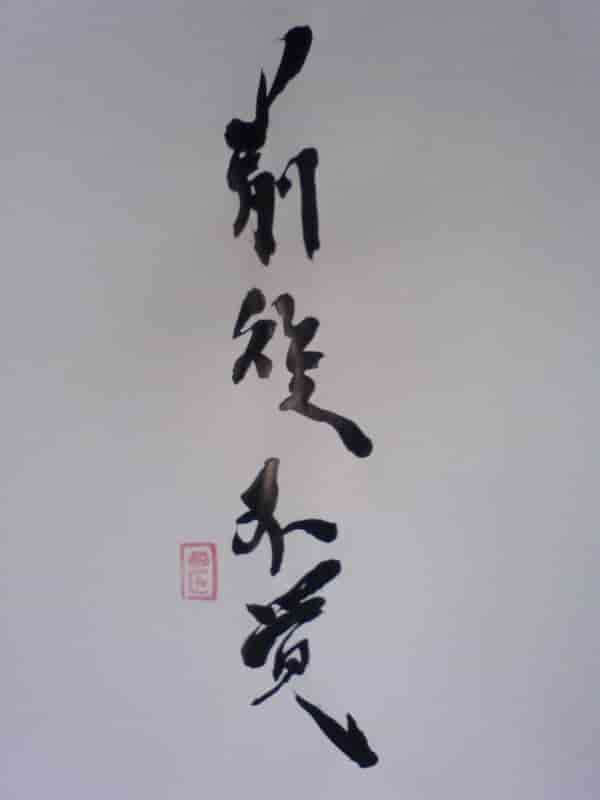 前後不覚